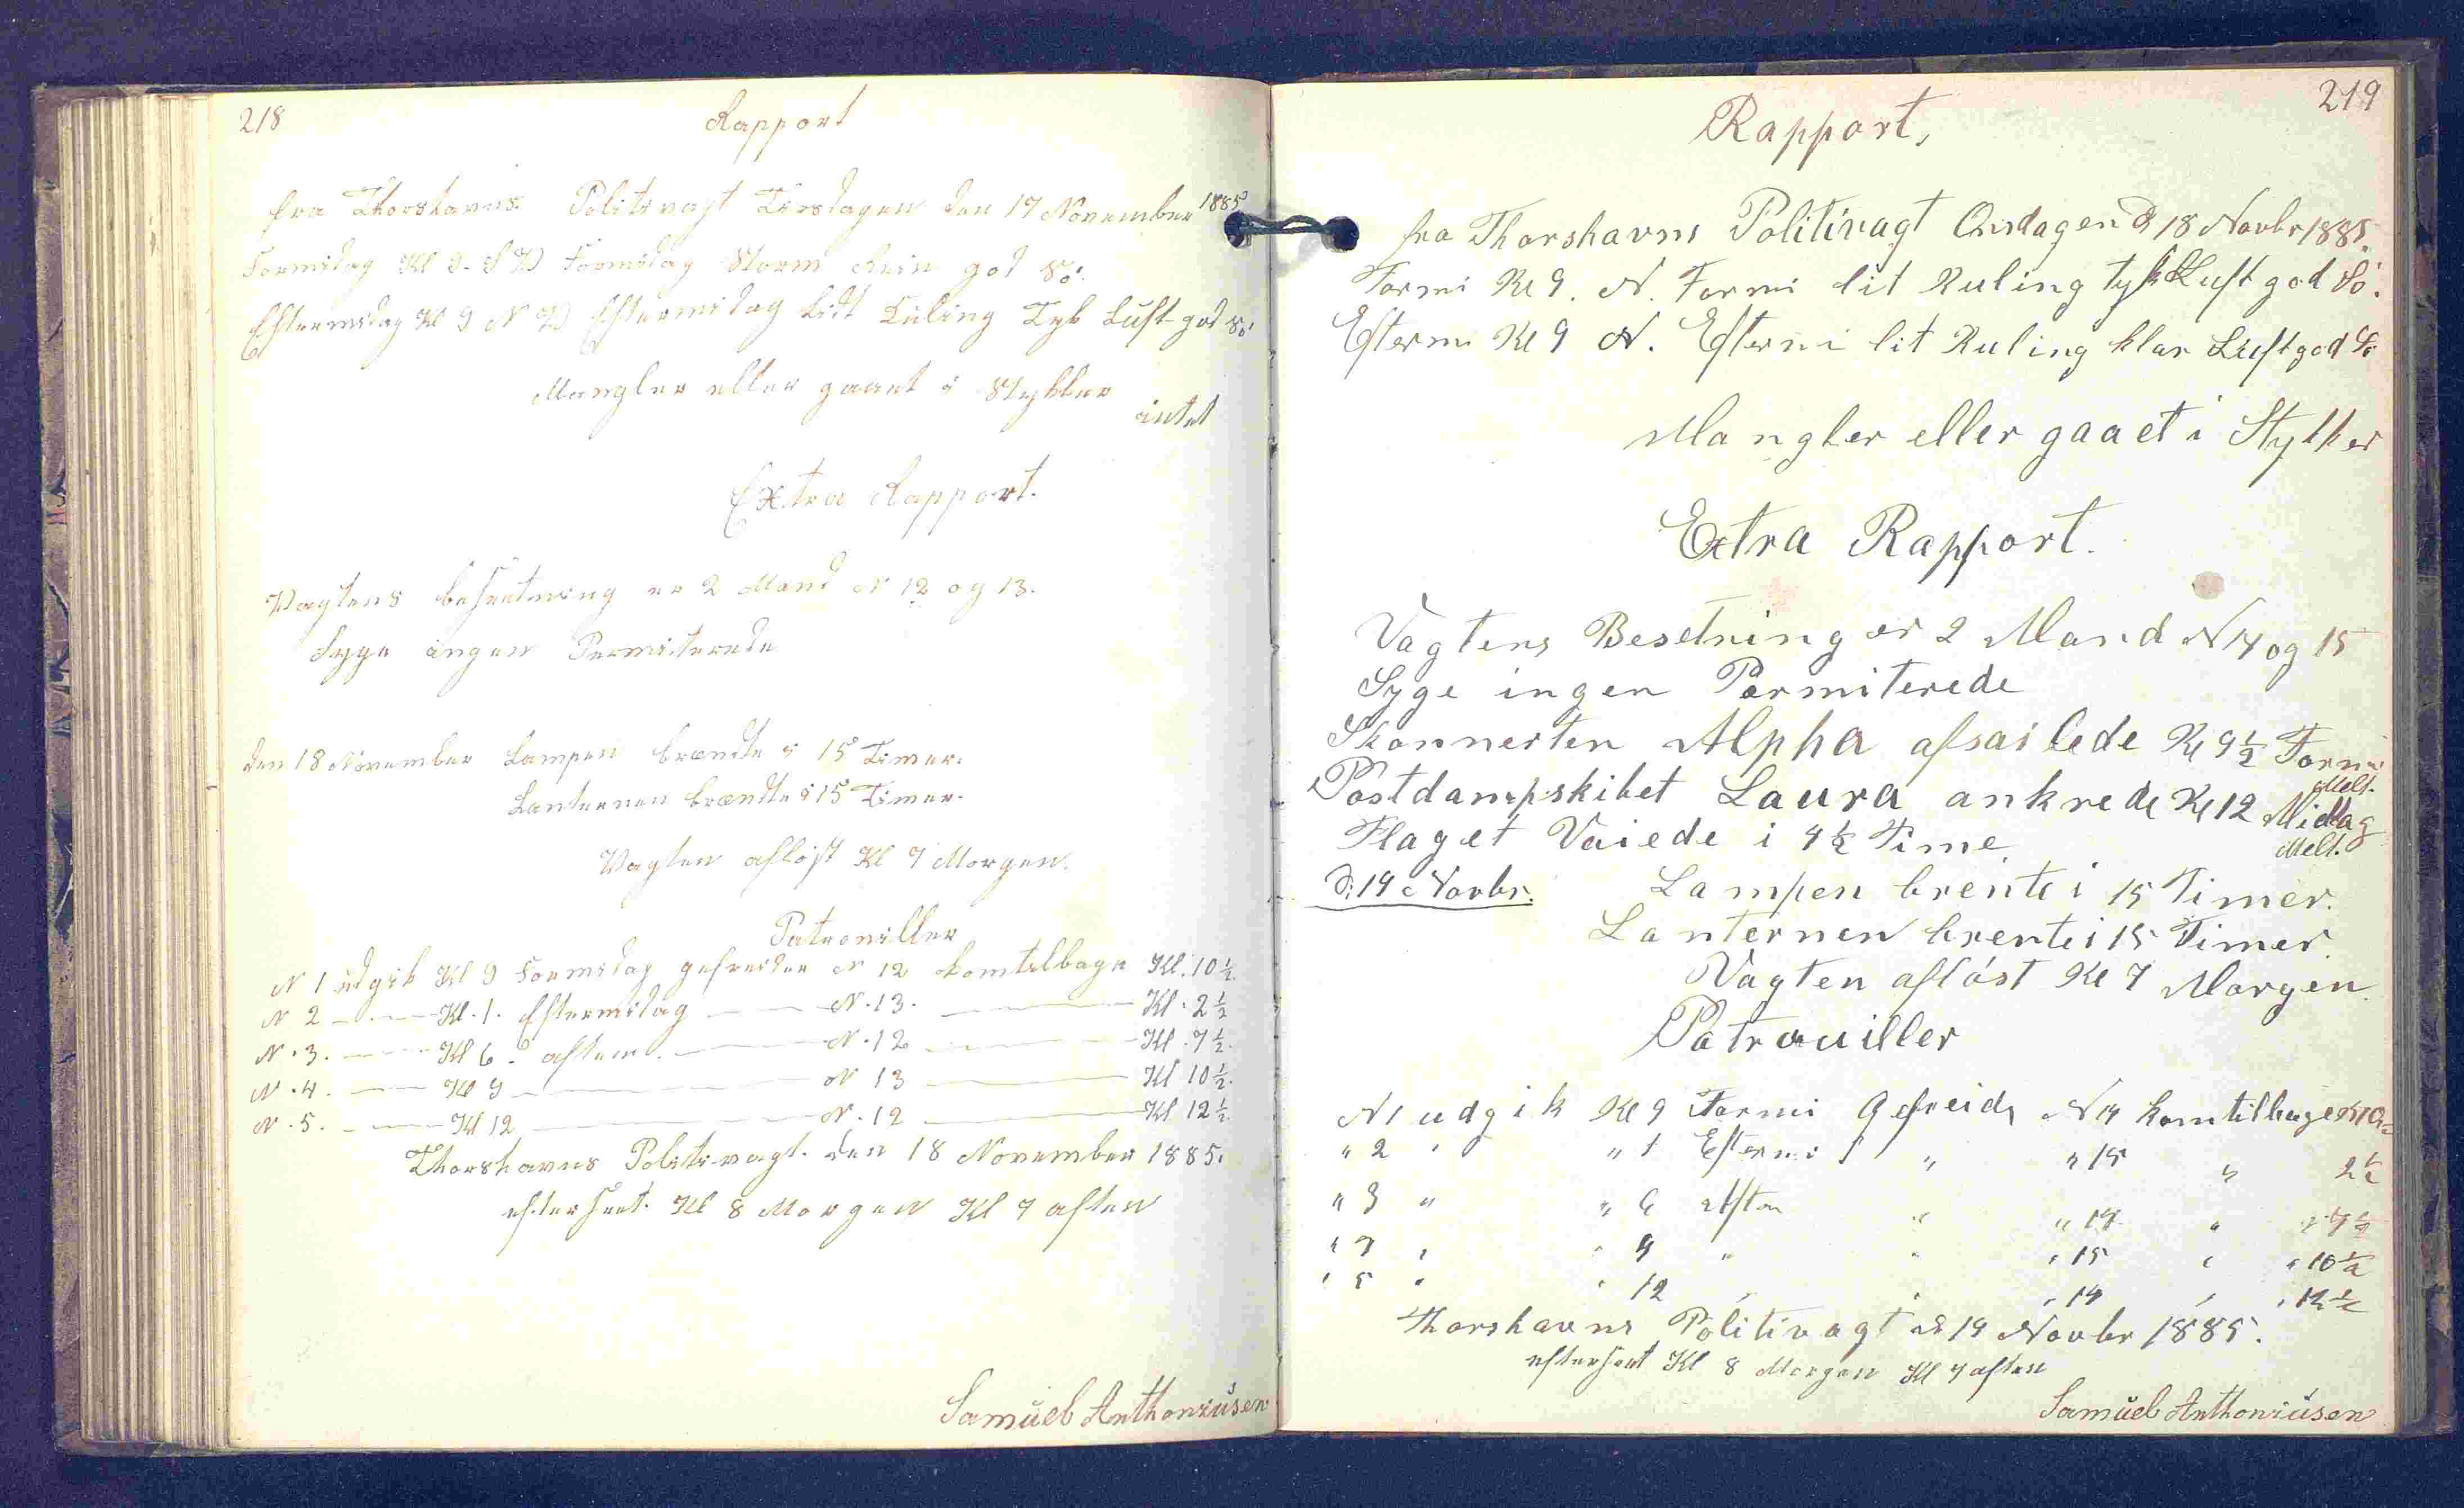 218
Rapport
fra Thorshavns Politivagt Tirsdagen den 17 November 1885
Formidag Kl 9. S V Formidag Storm Rein god Sö.
Eftermidag Kl 9 N V Eftermidag Lidt Kuling Tyk Luft god Sö
Mangler eller gaaet i Stykker
intet
Extra Rapport.
Vagtens besætning er 2 Mand N 12 og 13.
Syge ingen Permiterede
den 18 November Lampen brændte i 15 Timer.
Lanternen brændte i 15 Timer.
Vagten aflöst Kl 7 Morgen.
Patrouiller
N 1 udgik Kl 9 Formidag gefreider N 12 kom tilbage Kl. 10½
N 2 — Kl. 1. Eftermidag — N. 13. — Kl. 2½
N. 3. — Kl 6. aften. — N. 12 — Kl. 7½
N. 4. — Kl 9 — N 13 — Kl 10½
N. 5. — Kl 12 — N. 12 — Kl 12½
Thorshavns Politivagt. den 18 November 1885.
efterseet. Kl 8 Morgen Kl 7 aften
Samuel Anthoniusen
219
Rapport,
fra Thorshavns Politivagt Onsdagen d 18 Novbr 1885.
Formi Kl 9. N. Formi lit Kuling tyk Luft god Sö.
Eftermi Kl 9 N. Eftermi lit Kuling klar Luft god Sö
Mangler eller gaaet i Stykker
Extra Rapport.
Vagtens Besetning er 2 Mand N 14 og 15
Syge ingen Permiterede
Skonnerten Alpha afsailede Kl 9½ Formi
Melt.
Postdampskibet Laura ankrede Kl 12 Middag
Melt.
Flaget Vaiede i 4½ Time
d: 19 Novbr. Lampen brente i 15 Timer.
Lanternen brente i 15 Timer.
Vagten aflöst Kl 7 Morgen.
Patrouiller
N 1 udgik Kl 9 Formi Gefreider N 14 kom tilbage Kl 10½
" 2 " " 1 Eftermi " " 15 " 2½
" 3 " " 6 Aften " " 14 " " 7½
" 4 " " 9 " " " 15 " " 10½
" 5 " " 12 " " " 14 " " 12½
Thorshavns Politivagt d 19 Novbr 1885.
efterseet Kl 8 Morgen Kl 7 aften
Samuel Anthoniusen